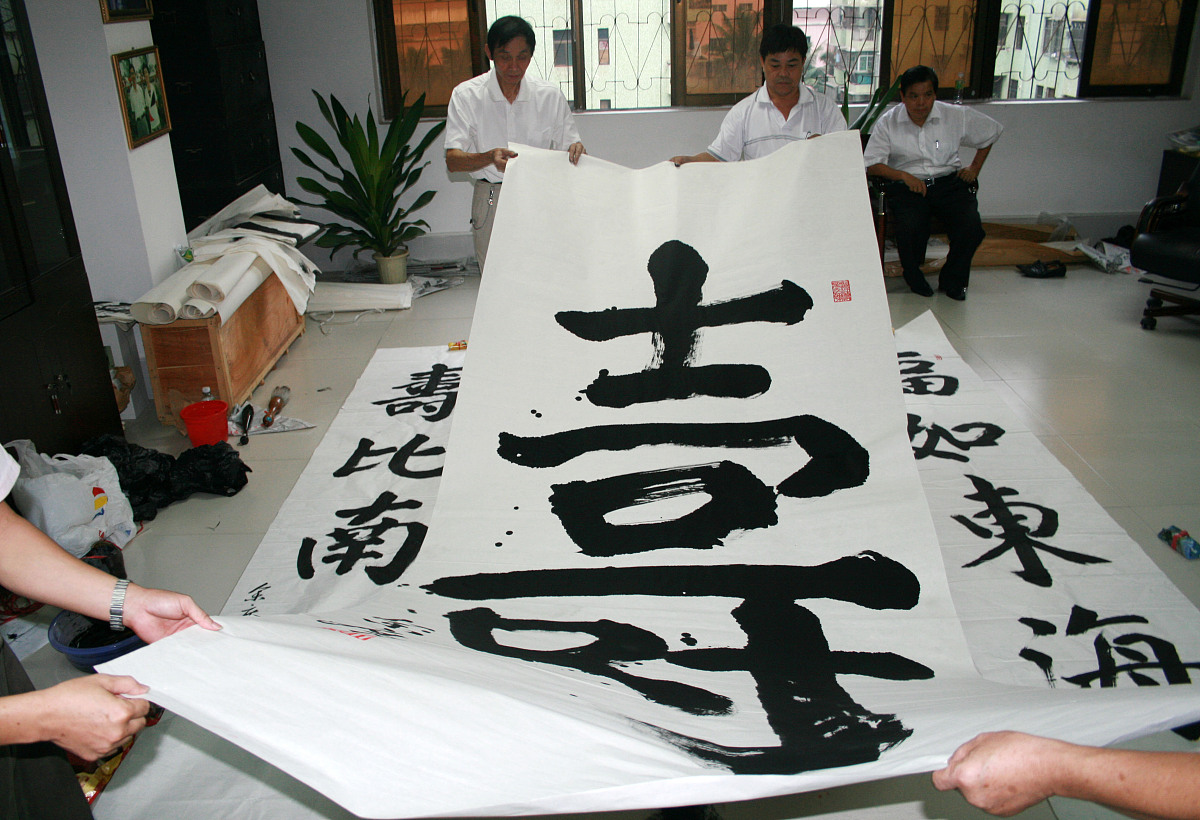 福如東海
壽
壽比南